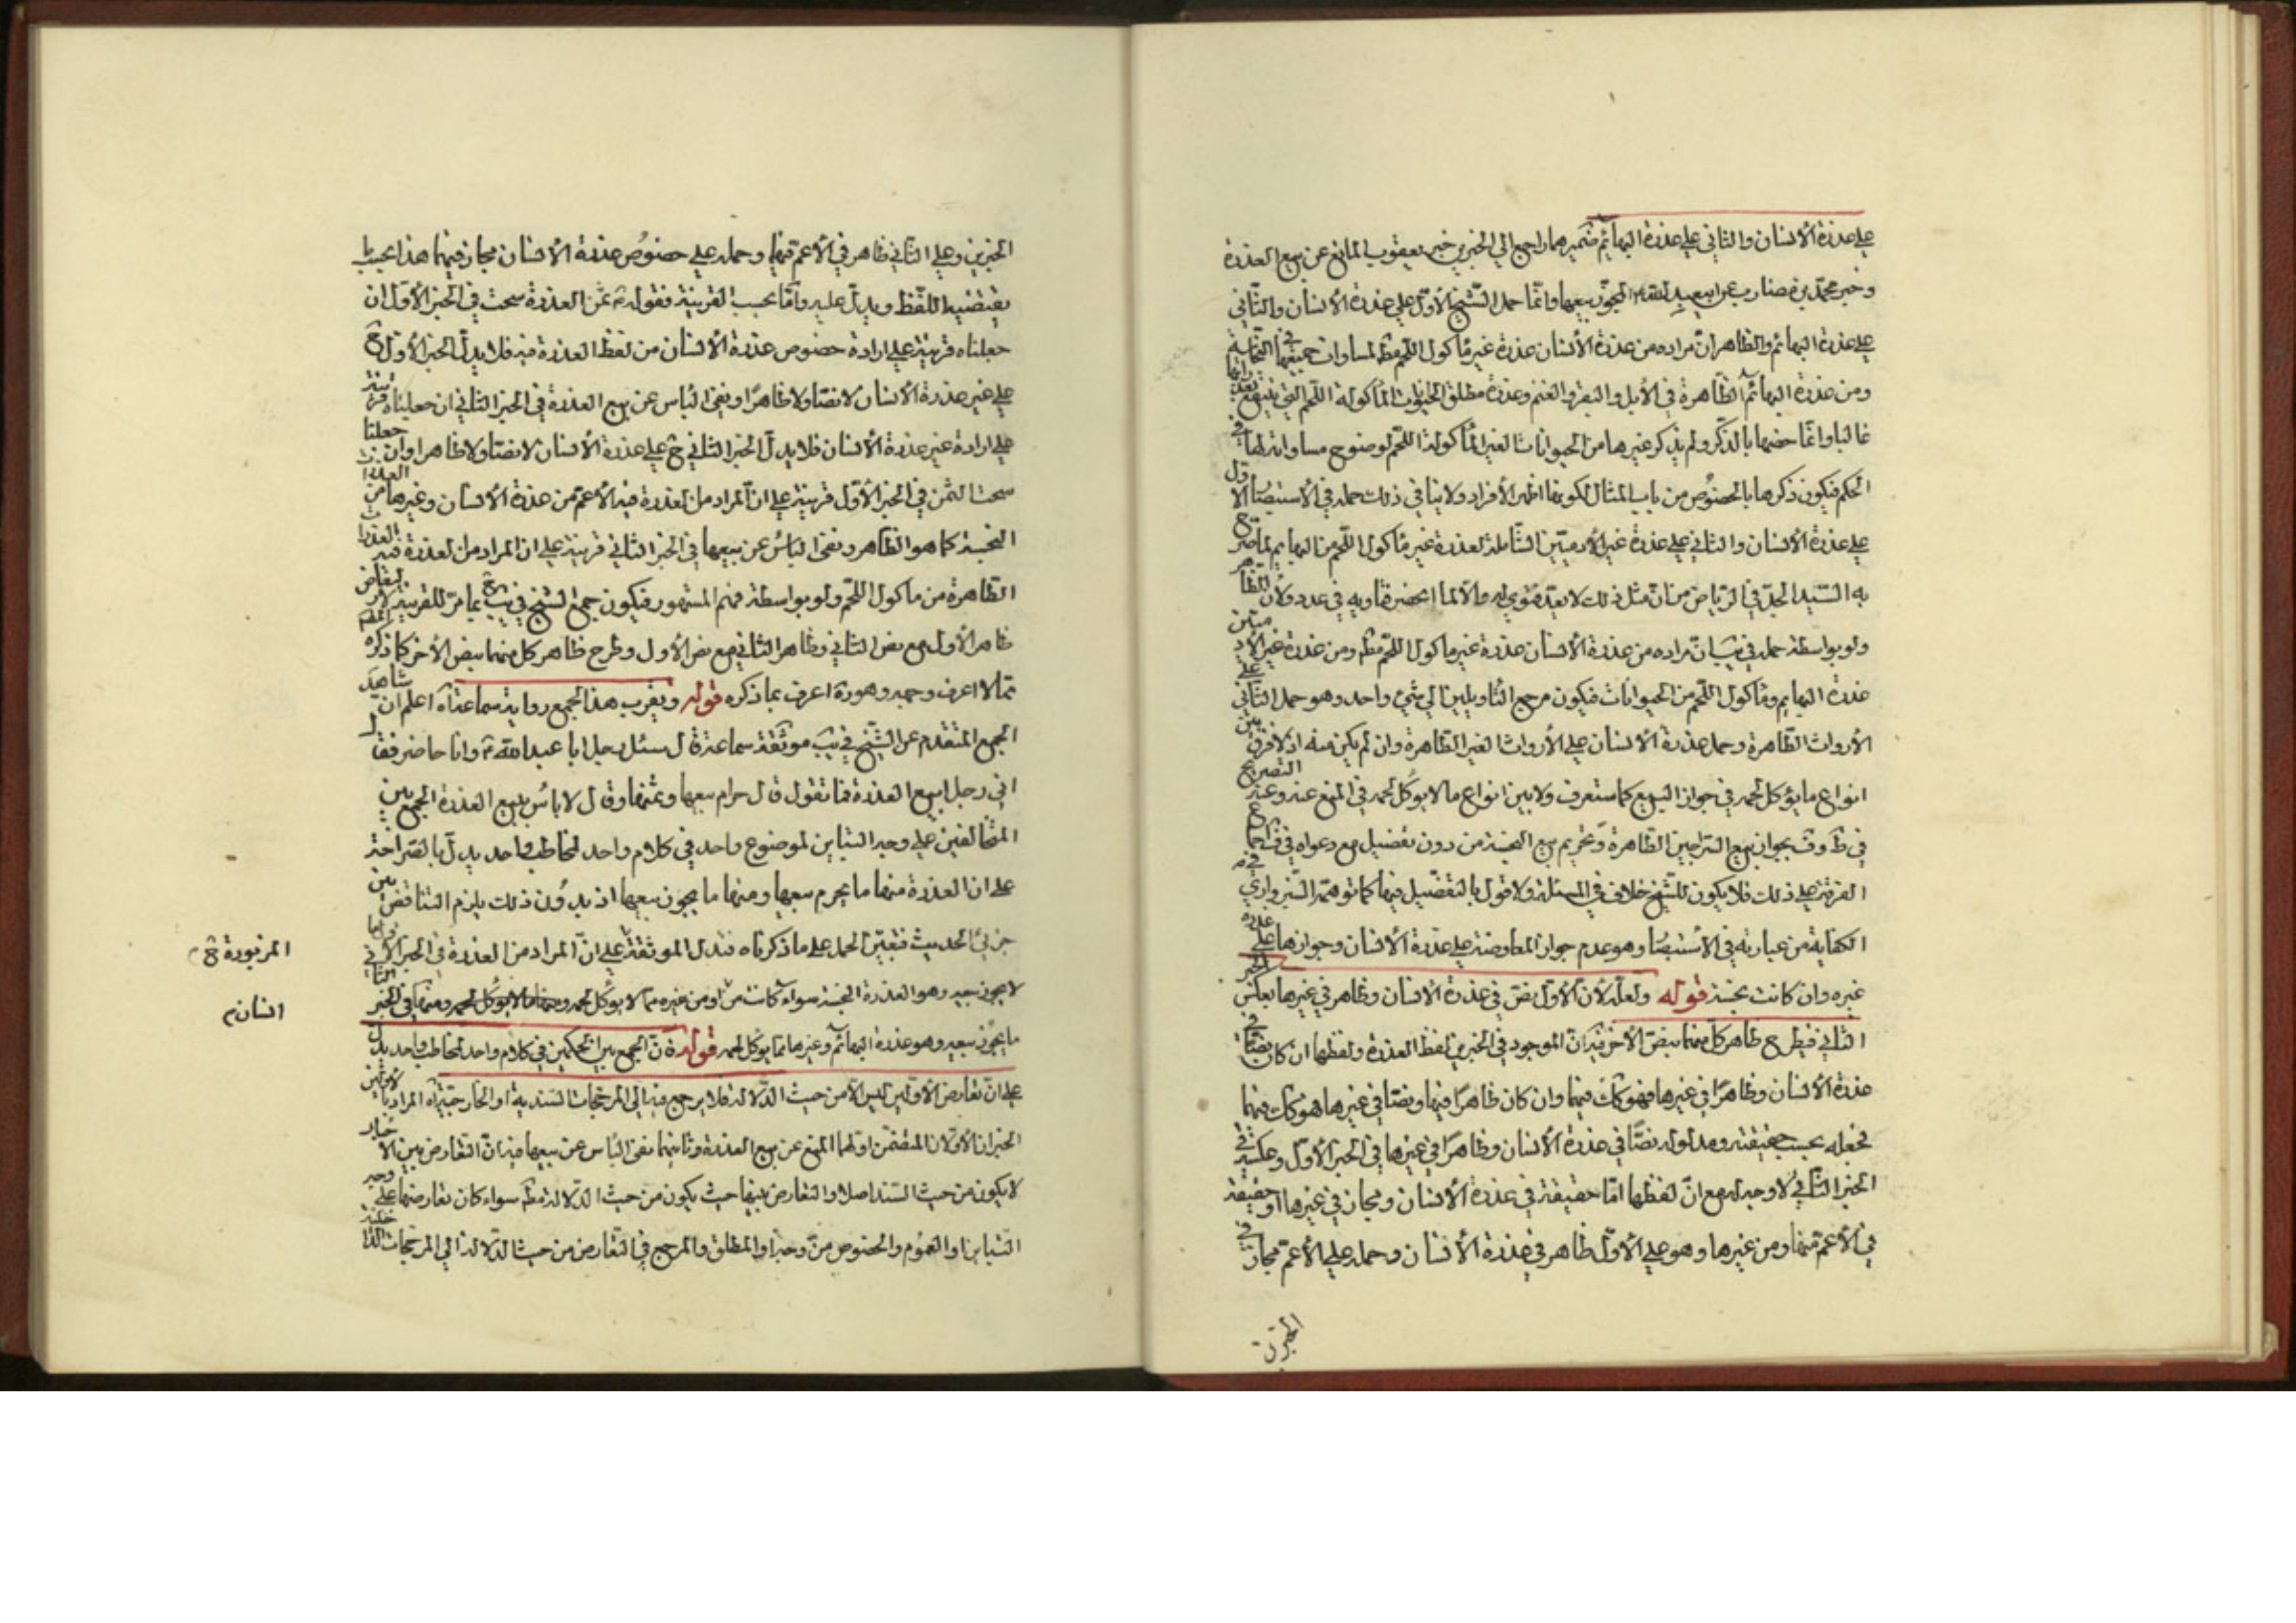 على عذرة الأنسان والثاني على عذرة البهائم ضميرهما راجع الى الخبرين خبر يعقوب المانع عن بيع العذرة
وخبر محمد بن مضارب عن ابيعبد الله المجوز بيعها وانما حمل الشيخ الأول على عذرة الأنسان والثاني
على عذرة البهائم والظاهر ان مراده من عذرة الأنسان عذرة غير مأكول اللحم مط لمساوات جميعها في النجاسة
ومن عذرة البهائم الظاهرة في الأبل والبقر والغنم وعذرة مطلق الحيوانات المأكولة اللحم التي ينتفع بعذراتها
غالبا وانما خصها بالذكر ولم يذكر غيرها من الحيوانات الغير المأكولة اللحم لوضوح مساواته لها في
الحكم فيكون ذكرها بالخصوص من باب المثال لكونها اظهر الأفراد ولا ينافي ذلك حمله في الأستبصار الأول
على عذرة الأنسان والثاني على عذرة غير الأدميين الشاملة لعذرة غير مأكول اللحم من البهايم لما صرح
به السيد الجل في الرياض من ان مثل ذلك لا يعد فتوى له والا لما انحصر فتاويه في عدد ولأن الظاهر
ولو بواسطة حمله في يب ان مراده من عذرة الأنسان عذرة غير ماكول اللحم مط ومن عذرة غير الأدميين
عذرة البهايم ومأكول اللحم من الحيوانات فيكون مرجع التأويلين الى شيء واحد وهو حمل الثاني على
الأرواث الطاهرة وحمل عذرة الأنسان على الأرواث الغير الطاهرة وان لم يكن منه اذ لا فرق بين
انواع ما يؤكل لحمه في جواز البيع كما ستعرف ولا بين انواع ما لا يؤكل لحمه في المنع عنه وعنه التصريح
في ط وف بجواز بيع السراجين الطاهرة وتحريم بيع النجسة من دون تفضيل مع دعواه في ف اجماع
الفرقة على ذلك فلا يكون للشيخ خلاف في المسئلة ولا قول بالتفضيل فيها كما توهمه السبزواري في
الكفاية من عبارته في الأستبصار وهو عدم جواز المعاوضة على عذرة الأنسان وجوازها على عذرة
غيره وان كانت نجسة قوله ولعله لأن الأول نص في عذرة الأنسان وظاهر في غيرها بعكس الخبر
الثاني فيطرح ظاهر كل منهما بنص الأخر فيه ان الموجود في الخبرين لفظ العذرة ولفظها ان كان نصا في
عذرة الأنسان وظاهرا في غيرها فهو كك فيهما وان كان ظاهرا فيها ونصا في غيرها فهو كك فيهما
فجعله بحسب حقيقته ومدلوله نصا في عذرة الأنسان وظاهرا في غيرها في الخبر الأول وعكسه في
الخبر الثاني لا وجه له مع ان لفظها اما حقيقة في عذرة الأنسان ومجاز في غيرها او حقيقة
في الأعم منها ومن غيرها وهو على الأول ظاهر في عذرة الأنسان وحمله على الأعم مجاز في
الخبرين
الخبرين وعلى الثاني ظاهر في الأعم فيها وحمله على خصوص عذرة الأنسان مجاز فيهما هذا بحسب ما
يقتضيه اللفظ ويدل عليه واما بحسب القرينة فقوله ثمن العذرة سحت في الخبر الأول ان
جعلناه قرينة على ارادة خصوص عذرة الأنسان من لفظ العذرة فيه فلا يدل الخبر الأول ح
على غير عذرة الأنسان لا نصا ولا ظاهرا ونفي البأس عن بيع العذرة في الخبر الثاني ان جعلناه قرينة
على ارادة غير عذرة الأنسان فلا يدل الخبر الثاني ح على عذرة الأنسان لا نصا ولا ظاهرا وان جعلنا
سحت الثمن في الخبر الأول قرينة على ان المراد من العذرة فيه الأعم من عذرة الأنسان وغيرها من
النجسة كما هو الظاهر ونفي البأس عن بيعها في الخبر الثاني قرينة على ان المراد من العذرة فيه العذرات
الطاهرة من ماكول اللحم ولو بواسطة فهم المشهور فيكون جمع الشيخ في يب بما مر للقرينة لا لتعارض
ظاهر الأول مع نص الثاني وظاهر الثاني مع نص الأول وطرح ظاهر كل منهما بنص الأخر كما ذكره المصم
مما لا اعرف وجهه وهو رة اعرف بما ذكره قوله ويقرب هذا الجمع رواية سماعة اه اعلم ان شاهد
الجمع المتقدم عن الشيخ في يب موثقة سماعة قال سئل رجل ابا عبد الله وانا حاضر فقال
اني رجل ابيع العذرة فما تقول قال حرام بيعها وثمنها وقال لا بأس ببيع العذرة الجمع بين
المتخالفين على وجه التباين لموضوع واحد في كلام واحد لمخاطب واحد يدل بالصراحة
على ان العذرة منها ما يحرم بيعها ومنها ما يجوز بيعها اذ بدون ذلك يلزم التناقض بين
جزئي الحديث فتعين الحمل على ما ذكرناه فتدل الموثقة على ان المراد من العذرة في الخبر الأول ما
لا يجوز بيعه وهو العذرة النجسة سواء كانت من او من غيره مما لا يؤكل لحمه ومنها في الخبر الثاني
ما يجوز بيعه وهو عذرة البهائم وغيرها مما يؤكل لحمه قوله فان الجمع بين الحكمين في كلام واحد لمخاطب واحد يدل
على ان تعارض الأولين ليس الا من حيث الدلالة فلا يرجع فيه الى المرجحات السندية او الخارجية اه المراد بالأولين
الخبران الأولان المتضمن اولهما المنع عن بيع العذرة وثانيهما نفي البأس عن بيعها فيه ان التعارض بين الأخبار
لا يكون من حيث السند اصلا والتعارض بينها حيث يكون من حيث الدلالة مط سواء كان تعارضهما على وجه
التباين او العموم والخصوص من وجه او المطلق والمرجع في التعارض من حيث الدلالة الى المرجحات الداخلية
المزبورة
انسان